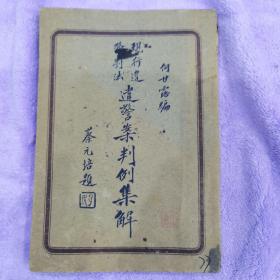 何甘露編
現行違
警罰法
違警案判例集解
蔡元培題